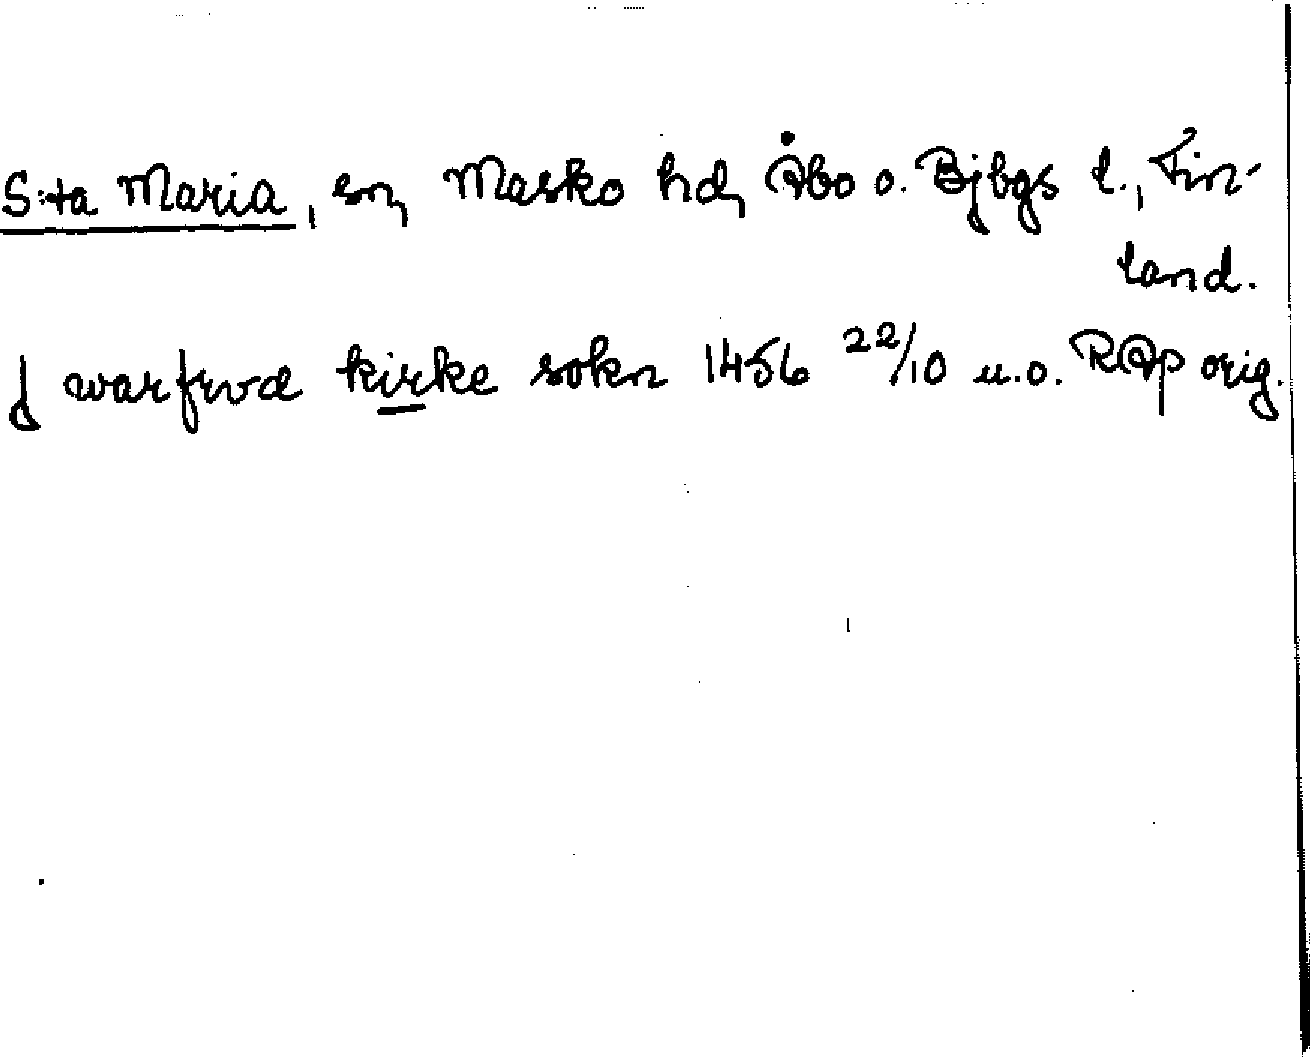 S:ta Maria, sn, Masko hd, Åbo o. Bjbgs l., Fin-
land.
J warfrwæ kirke sokn 1456 22/10 u.o. RAp orig.